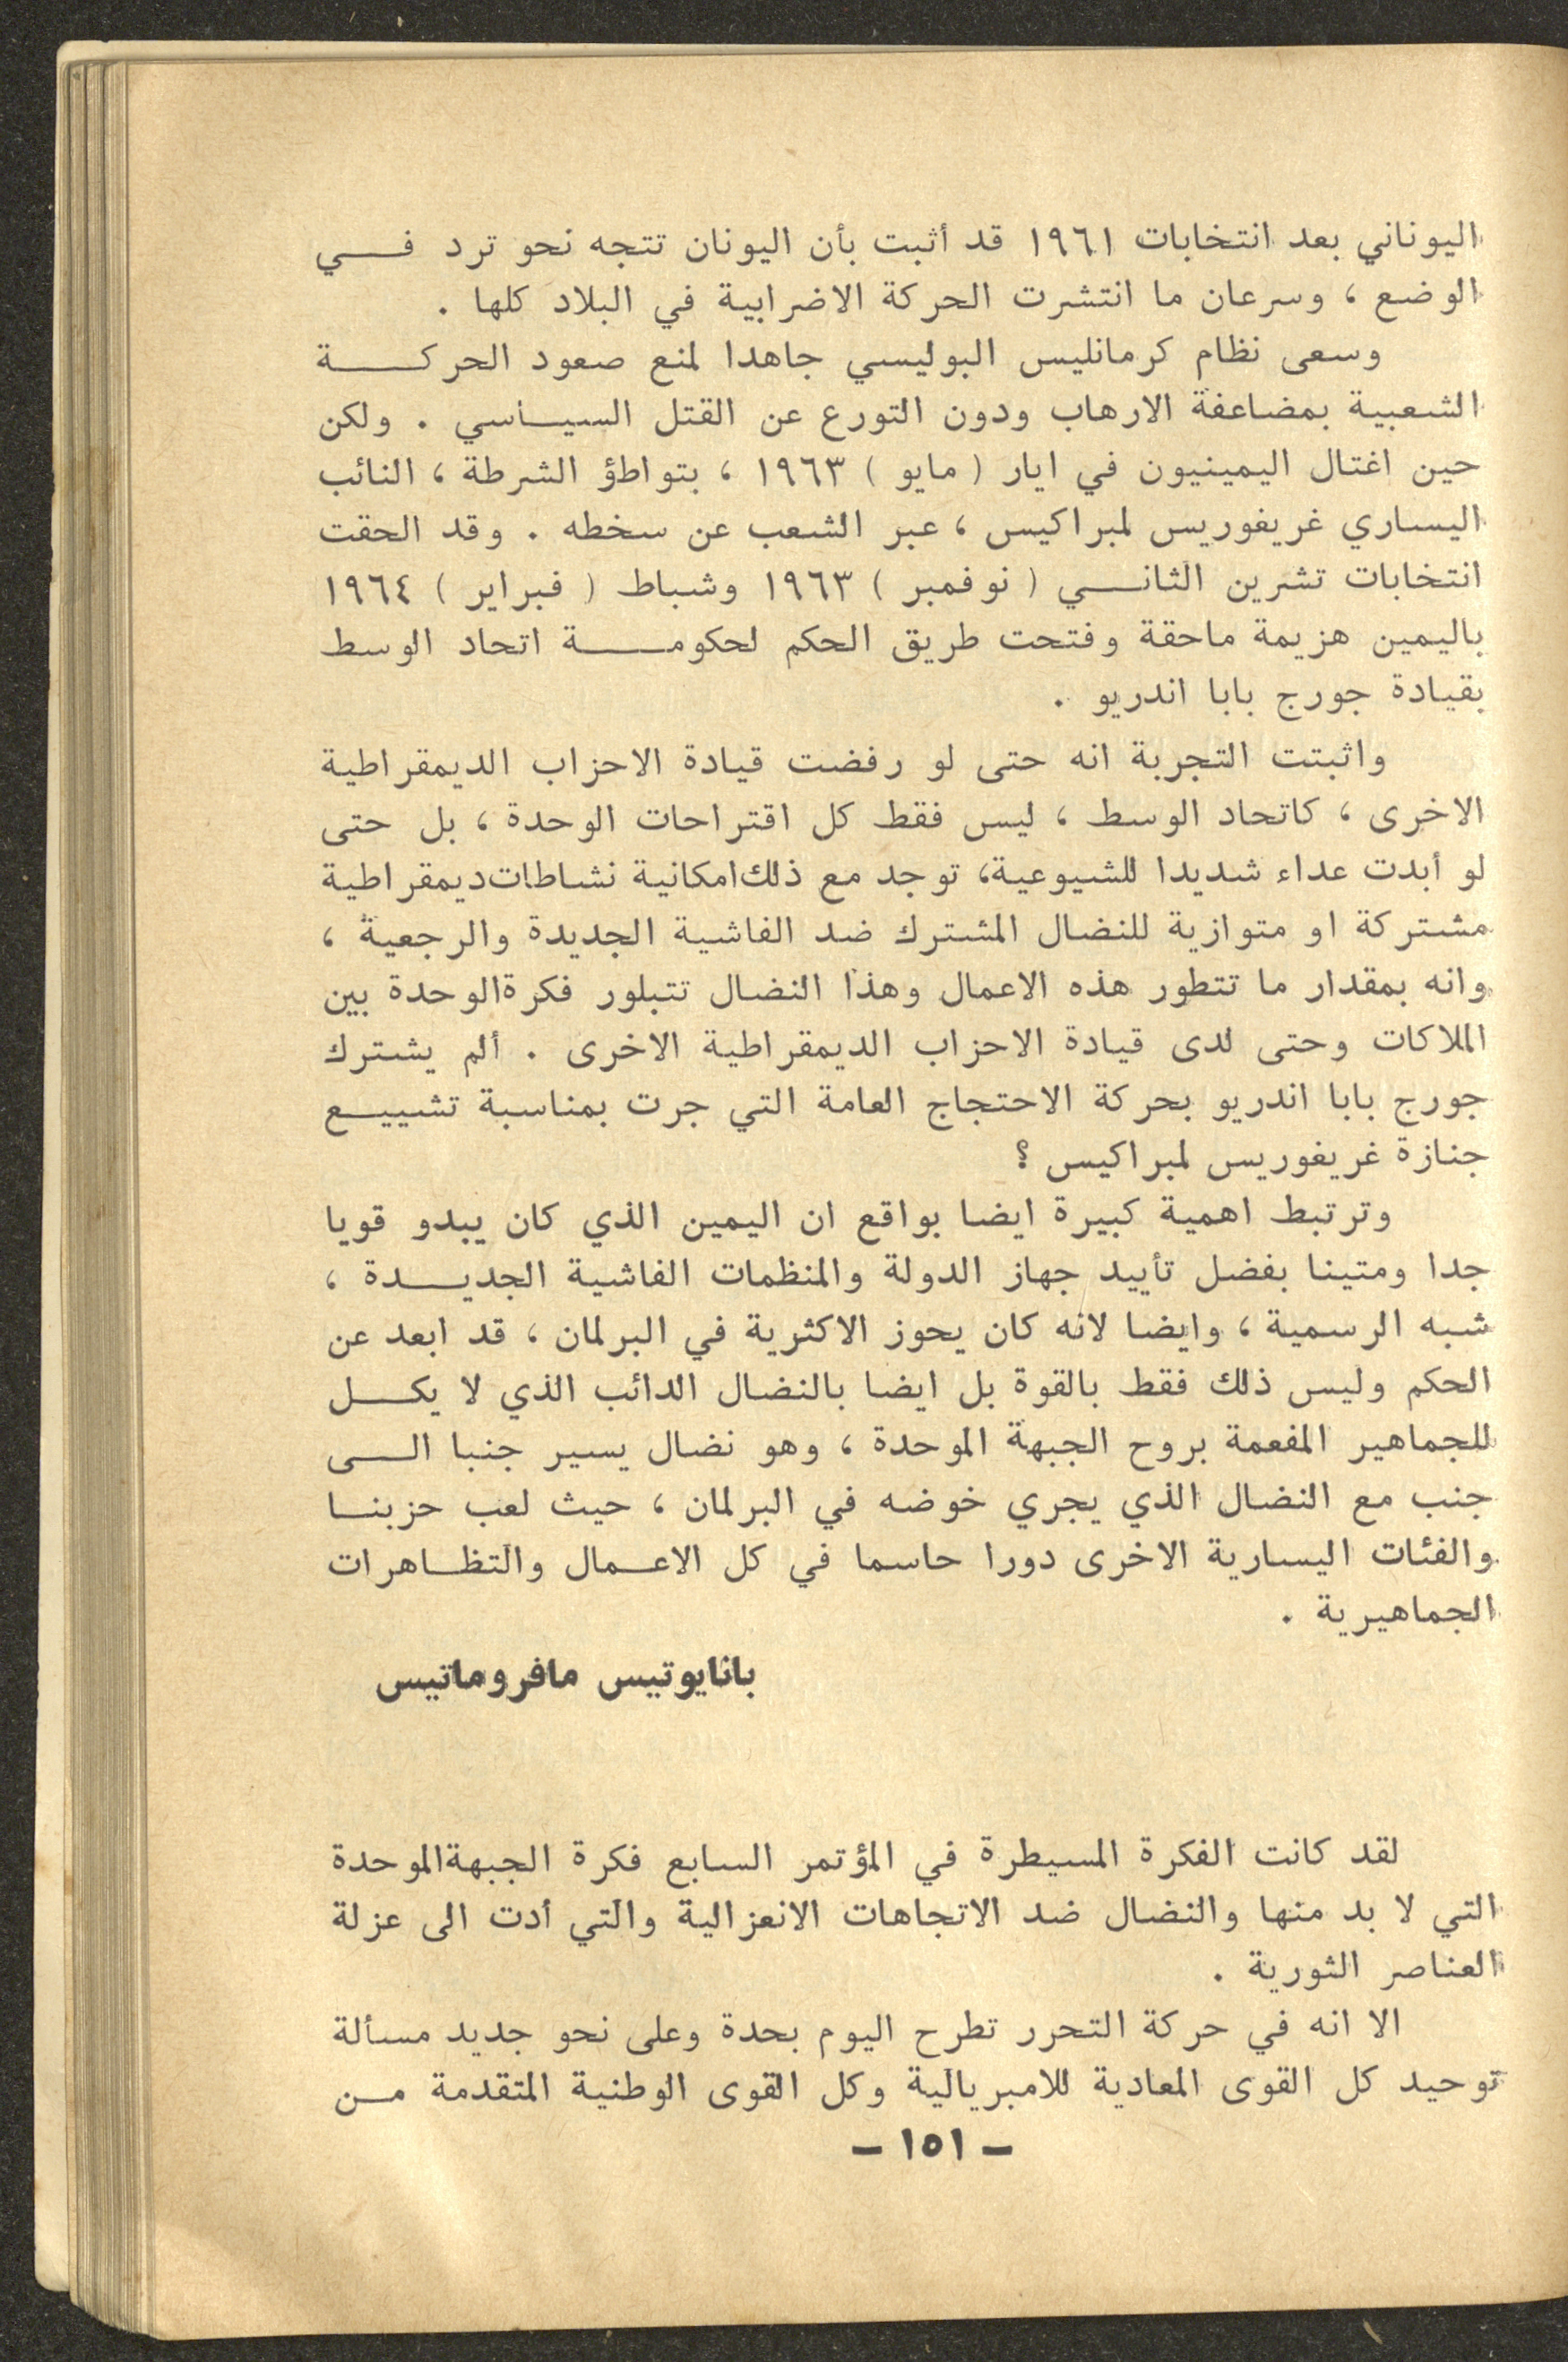 اليوناني بعد انتخابات ١٩٦١ قد أثبت بأن اليونان تتجه نحو ترد في
الوضع ، وسرعان ما انتشرت الحركة الاضرابية في البلاد كلها .
وسعى نظام كرمانليس البوليسي جاهدا لمنع صعود الحركة
الشعبية بمضاعفة الارهاب ودون التورع عن القتل السياسي . ولكن
حين اغتال اليمينيون في ايار ( مايو ) ١٩٦٣ ، بتواطؤ الشرطة ، النائب
اليساري غريغوريس لمبراكيس ، عبر الشعب عن سخطه . وقد الحقت
انتخابات تشرين الثاني ( نوفمبر ) ١٩٦٣ وشباط ( فبراير ) ١٩٦٤
باليمين هزيمة ماحقة وفتحت طريق الحكم لحكومة اتحاد الوسط
بقيادة جورج بابا اندريو .
واثبتت التجربة انه حتى لو رفضت قيادة الاحزاب الديمقراطية
الاخرى ، كاتحاد الوسط ، ليس فقط كل اقتراحات الوحدة ، بل حتى
لو أبدت عداء شديدا للشيوعية، توجد مع ذلك امكانية نشاطات ديمقراطية
مشتركة او متوازية للنضال المشترك ضد الفاشية الجديدة والرجعية ،
وانه بمقدار ما تتطور هذه الاعمال وهذا النضال تتبلور فكرة الوحدة بين
الملاكات وحتى لدى قيادة الاحزاب الديمقراطية الاخرى . ألم يشترك
جورج بابا اندريو بحركة الاحتجاج العامة التي جرت بمناسبة تشييع
جنازة غريغوريس لمبراكيس ؟
وترتبط اهمية كبيرة ايضا بواقع ان اليمين الذي كان يبدو قويا
جدا ومتينا بفضل تأييد جهاز الدولة والمنظمات الفاشية الجديدة ،
شبه الرسمية ، وايضا لانه كان يحوز الاكثرية في البرلمان ، قد ابعد عن
الحكم وليس ذلك فقط بالقوة بل ايضا بالنضال الدائب الذي لا يكل
للجماهير المفعمة بروح الجبهة الموحدة ، وهو نضال يسير جنبا الى
جنب مع النضال الذي يجري خوضه في البرلمان ، حيث لعب حزبنا
والفئات اليسارية الاخرى دورا حاسما في كل الاعمال والتظاهرات
الجماهيرية .
بانايوتيس مافروماتيس
لقد كانت الفكرة المسيطرة في المؤتمر السابع فكرة الجبهة الموحدة
التي لا بد منها والنضال ضد الاتجاهات الانعزالية والتي أدت الى عزلة
العناصر الثورية .
الا انه في حركة التحرر تطرح اليوم بحدة وعلى نحو جديد مسألة
توحيد كل القوى المعادية للامبريالية وكل القوى الوطنية المتقدمة من
– ١٥١ –